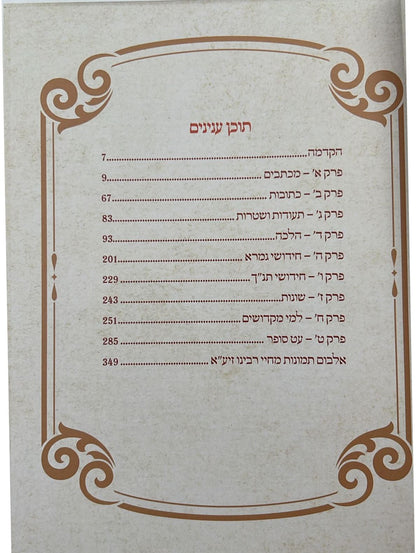 תוכן ענינים
הקדמה 7
פרק א' – מכתבים 9
פרק ב' – כתובות 67
פרק ג' – תעודות ושטרות 83
פרק ד' – הלכה 93
פרק ה' – חידושי גמרא 201
פרק ו' – חידושי תנ"ך 229
פרק ז' – שונות 243
פרק ח' – למי מקדושים 251
פרק ט' – עט סופר 285
אלבום תמונות מחיי רבינו זיע"א 349